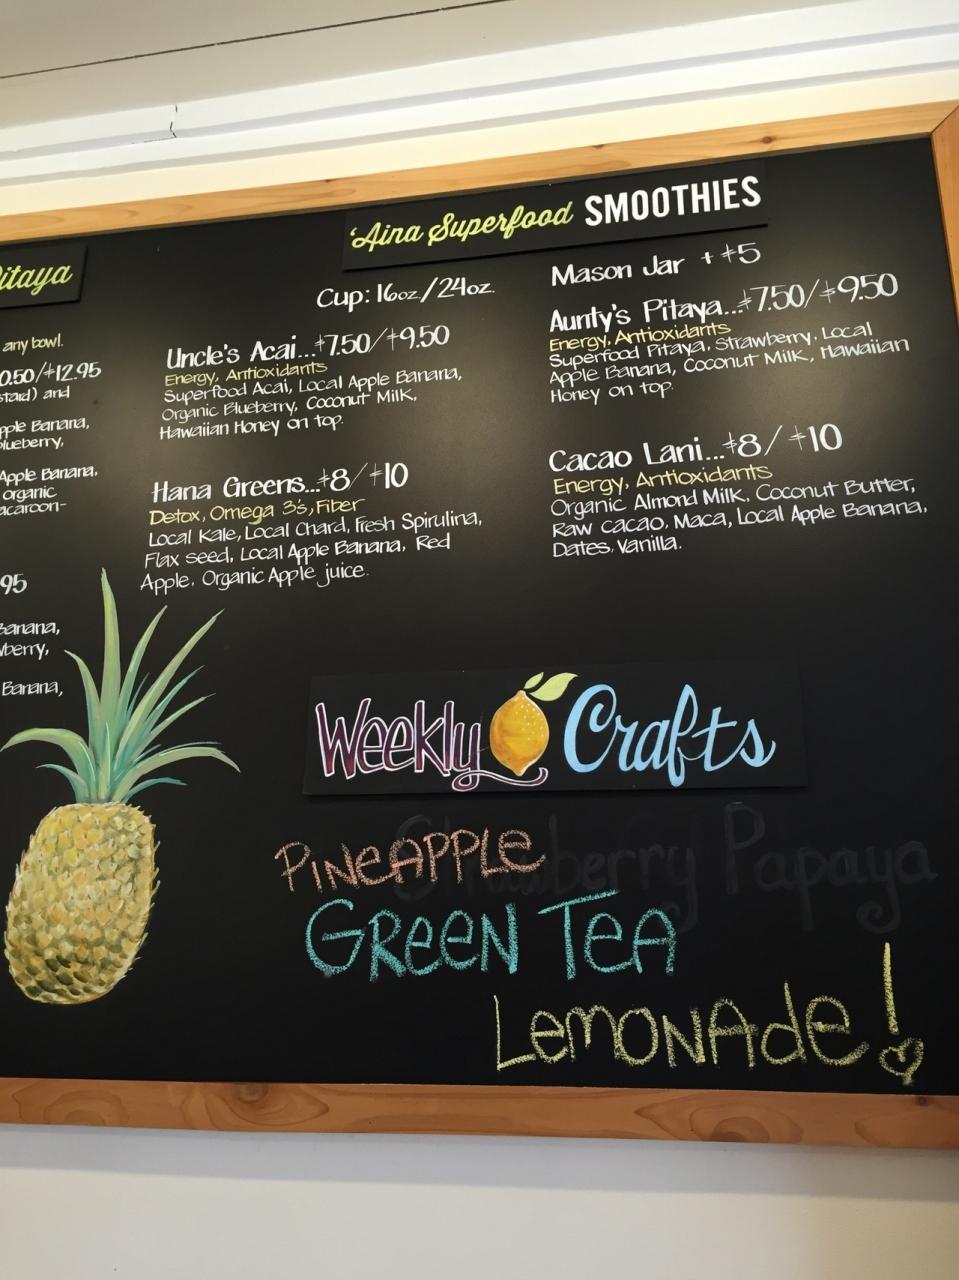 Pitaya
any bowl.
0.50/$12.95
and
Apple Banana,
Blueberry,
Apple Banana,
organic
macaroon-
95
Banana,
Banana,
'Aina Superfood SMOOTHIES
Cup: 16oz./24oz.
Mason Jar + $5
Uncle's Acai...$7.50/$9.50
Energy, Antioxidants
Superfood Acai, Local Apple Banana,
Organic Blueberry, Coconut Milk,
Hawaiian Honey on top.
Aunty's Pitaya...$7.50/$9.50
Energy, Antioxidants
Superfood Pitaya, Strawberry, Local
Apple Banana, Coconut Milk, Hawaiian
Honey on top.
Hana Greens...$8/$10
Detox, Omega 3s, Fiber
Local Kale, Local Chard, Fresh Spirulina,
Flax seed, Local Apple Banana, Red
Apple, Organic Apple juice.
Cacao Lani...$8/$10
Energy, Antioxidants
Organic Almond Milk, Coconut Butter,
Raw cacao, Maca, Local Apple Banana,
Dates, Vanilla.
Weekly Crafts
Strawberry Papaya
PINEAPPLE
GREEN TEA
LEMONADE!